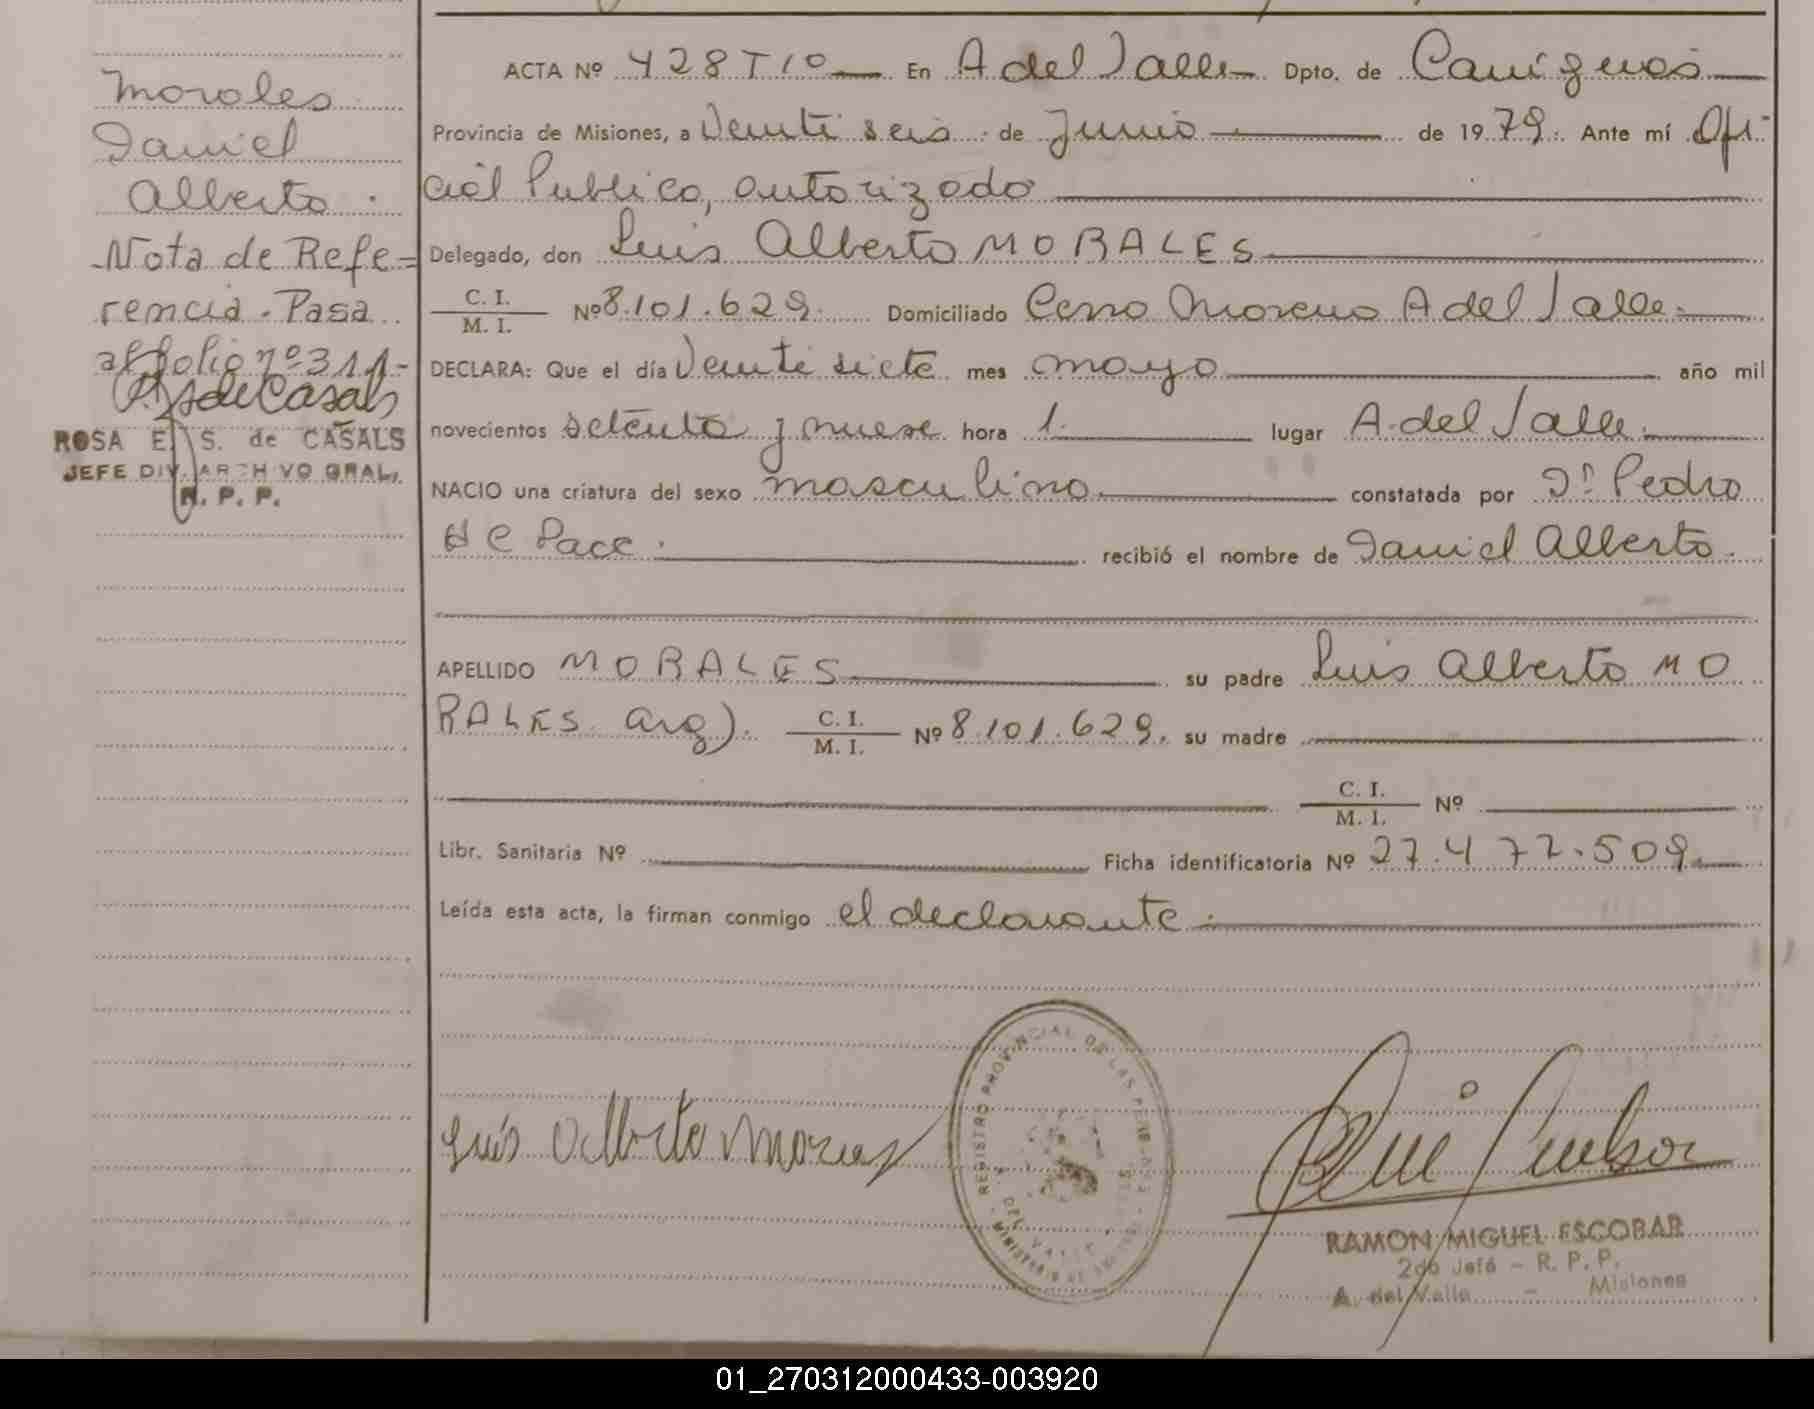 Morales
Daniel
Alberto.
Nota de Refe=
rencia. Pasa
al folio nº 311-
RSdeCasals
ROSA E. S. de CASALS
JEFE DIV. ARCHIVO GRAL.
R. P. P.
ACTA Nº 428 T 10 En A del Valle Dpto. de Cainguas
Provincia de Misiones, a Veinti seis de Junio de 1979. Ante mí Ofi-
cial Publico, autorizado
Delegado, don Luis Alberto MORALES
C. I. / M. I. Nº 8.101.629. Domiciliado Cerro Moreno A del Valle.
DECLARA: Que el día Veinti siete mes mayo año mil
novecientos setenta y nueve hora 1. lugar A. del Valle.
NACIO una criatura del sexo masculino constatada por Dr Pedro
H C Pace. recibió el nombre de Daniel Alberto.
APELLIDO MORALES su padre Luis Alberto MO
RALES arg). C. I. / M. I. Nº 8.101.629. su madre
C. I. / M. I. Nº
Libr. Sanitaria Nº Ficha identificatoria Nº 27.477.509.
Leída esta acta, la firman conmigo el declarante.
Luis Alberto Morales
REGISTRO PROVINCIAL DE LAS PERSONAS
A. DEL VALLE
MINISTERIO DE
RAMON MIGUEL ESCOBAR
2do Jefe - R. P. P.
A. del Valle - Misiones
01_270312000433-003920